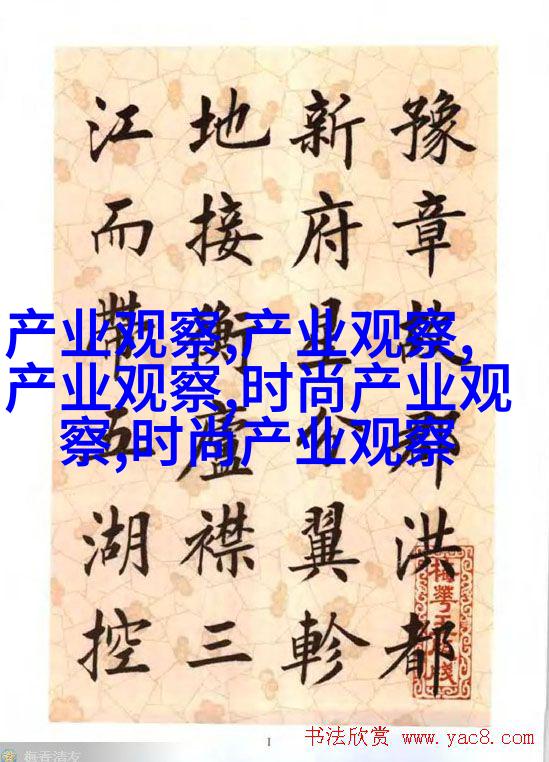 豫章故郡洪都
新府星分翼軫
地接衡廬襟三
江而帶五湖控
产业观察,产业观察,
产业观察,时尚产业观
察,时尚产业观察
1
书法欣赏 www.yac8.com
梅香清友